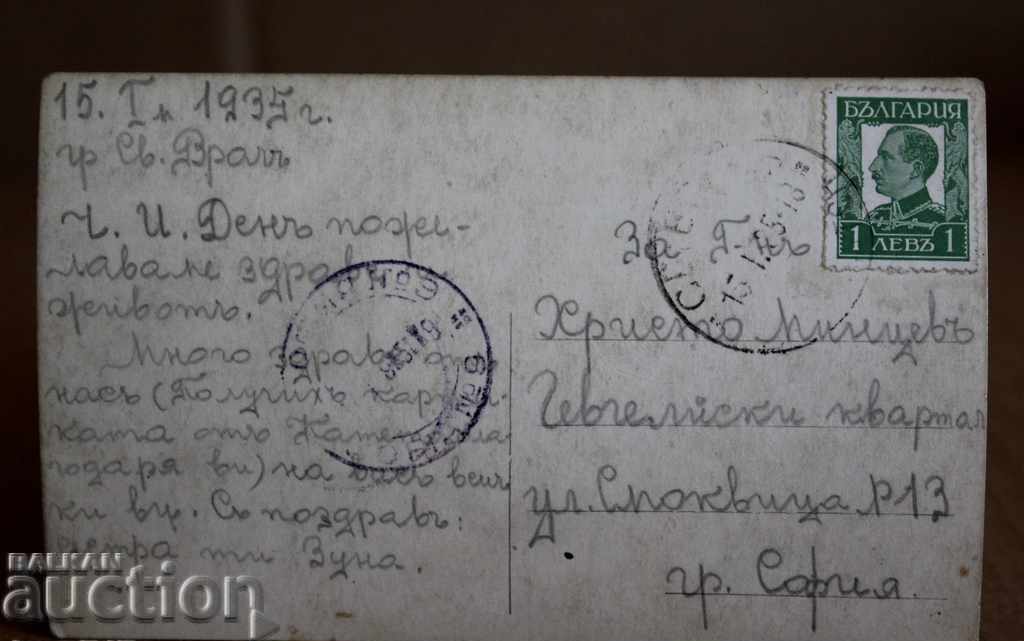 15. I м 1935 г.
гр Св. Врачъ
Ч. И. Денъ поже-
лаваме здравъ
животъ.
Много здраве отъ
насъ (Получихъ карти-
ката отъ Катень бла-
годаря ви) на васъ всич-
ки вц. Съ поздравъ:
сестра ти Зуна.
БЪЛГАРИЯ
1 ЛЕВЪ 1
За Г-нъ
Христо Минцевъ
Гевгелийски квартал
ул. Смоквица № 13
гр. София
BALKAN
auction